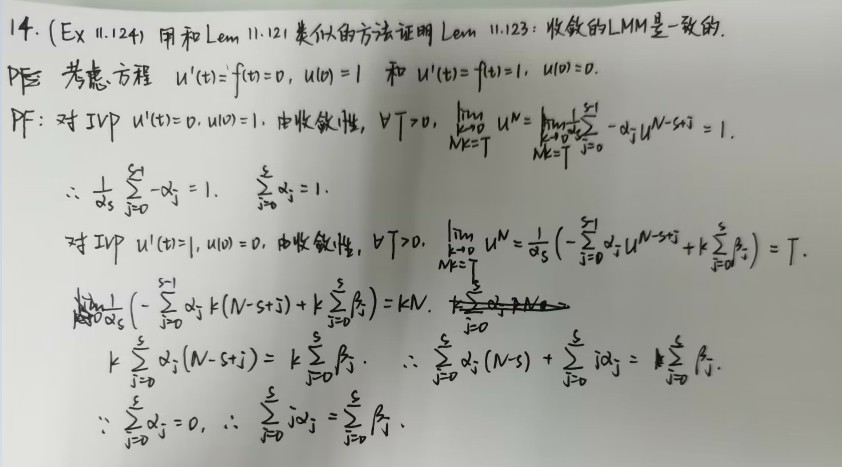 14. (Ex 11.124) 用和 Lem 11.121 类似的方法证明 Lem 11.123: 收敛的LMM是一致的.
考虑方程 u'(t)=f(t)=0, u(0)=1 和 u'(t)=f(t)=1, u(0)=0.
PF: 对 IVP u'(t)=0, u(0)=1. 由收敛性, ∀T>0, lim_{k→0, Nk=T} U^N = lim_{k→0, Nk=T} 1/α_s Σ_{j=0}^{s-1} -α_j U^{N-s+j} = 1.
∴ 1/α_s Σ_{j=0}^{s-1} -α_j = 1. Σ_{j=0}^{s} α_j = 1.
对 IVP u'(t)=1, u(0)=0, 由收敛性, ∀T>0. lim_{k→0, Nk=T} U^N = 1/α_s (-Σ_{j=0}^{s-1} α_j U^{N-s+j} + k Σ_{j=0}^{s} β_j) = T.
1/α_s (-Σ_{j=0}^{s-1} α_j k(N-s+j) + k Σ_{j=0}^{s} β_j) = kN.
k Σ_{j=0}^{s} α_j (N-s+j) = k Σ_{j=0}^{s} β_j. ∴ Σ_{j=0}^{s} α_j (N-s) + Σ_{j=0}^{s} jα_j = Σ_{j=0}^{s} β_j.
∵ Σ_{j=0}^{s} α_j = 0, ∴ Σ_{j=0}^{s} jα_j = Σ_{j=0}^{s} β_j.